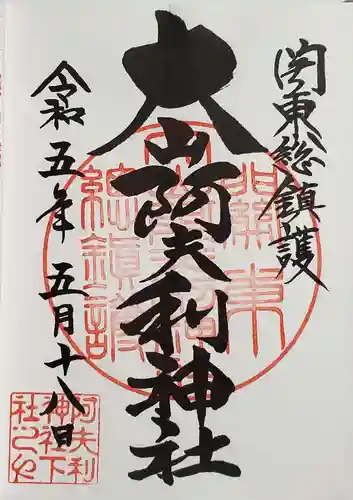 関東総鎮護
大山阿夫利神社
令和五年 五月十八日
阿夫利
神社下
社之印